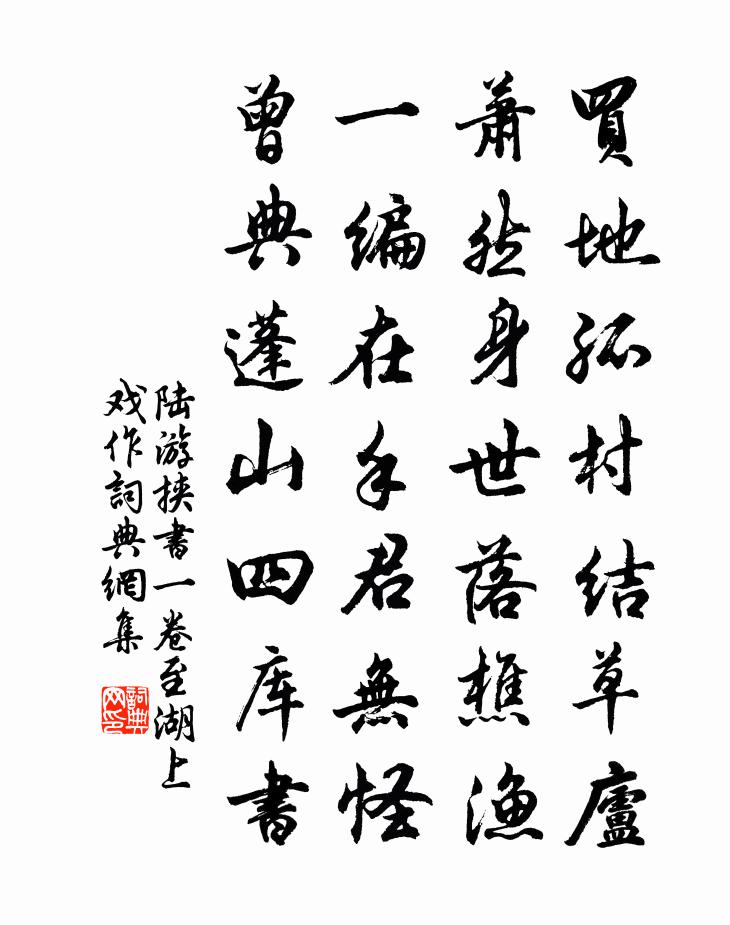 買地孤村結草廬
蕭然身世落樵漁
一编在手君無怪
曾典蓬山四库書
陆游挾書一卷至湖上
戏作詞典網集
詞典网印